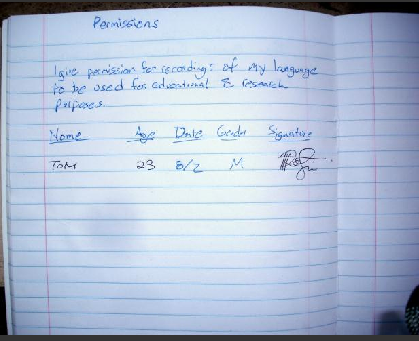 Permissions
I give permission for recordings of my language
to be used for educational & research
purposes
Name Age Date Gender Signature
Tom 23 8/2 M